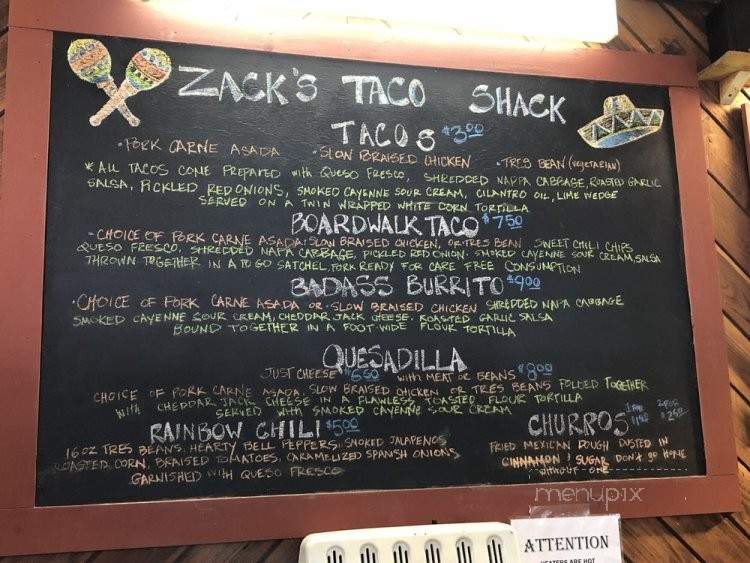 ZACK'S TACO SHACK
TACOS $3.00
• PORK CARNE ASADA • SLOW BRAISED CHICKEN • TRES BEAN (VEGETARIAN)
* ALL TACOS COME PREPARED with QUESO FRESCO, SHREDDED NAPPA CABBAGE, ROASTED GARLIC
SALSA, PICKLED RED ONIONS, SMOKED CAYENNE SOUR CREAM, CILANTRO OIL, LIME WEDGE
SERVED ON A TWIN WRAPPED WHITE CORN TORTILLA
BOARDWALK TACO $7.50
• CHOICE OF PORK CARNE ASADA, SLOW BRAISED CHICKEN, OR TRES BEAN SWEET CHILI CHIPS
QUESO FRESCO, SHREDDED NAPA CABBAGE, PICKLED RED ONION, SMOKED CAYENNE SOUR CREAM, SALSA
THROWN TOGETHER IN A TO GO SATCHEL FORK READY FOR CARE FREE CONSUMPTION
BADASS BURRITO $9.00
• CHOICE OF PORK CARNE ASADA OR SLOW BRAISED CHICKEN SHREDDED NAPA CABBAGE
SMOKED CAYENNE SOUR CREAM, CHEDDAR JACK CHEESE, ROASTED GARLIC SALSA
BOUND TOGETHER IN A FOOT-WIDE FLOUR TORTILLA
QUESADILLA
JUST CHEESE $6.50 with MEAT OR BEANS $8.00
CHOICE OF PORK CARNE ASADA, SLOW BRAISED CHICKEN OR TRES BEANS FOLDED TOGETHER
with CHEDDAR JACK CHEESE IN A FLAWLESS TOASTED FLOUR TORTILLA
SERVED with SMOKED CAYENNE SOUR CREAM
RAINBOW CHILI $5.00
16 OZ TRES BEANS, HEARTY BELL PEPPERS, SMOKED JALAPENOS
ROASTED CORN, BRAISED TOMATOES, CARAMELIZED SPANISH ONIONS
GARNISHED with QUESO FRESCO
CHURROS
2 FOR
FRIED MEXICAN DOUGH DUSTED IN
CINNAMON & SUGAR DON'T GO HOME
without ONE
menupix
ATTENTION
HEATERS ARE HOT